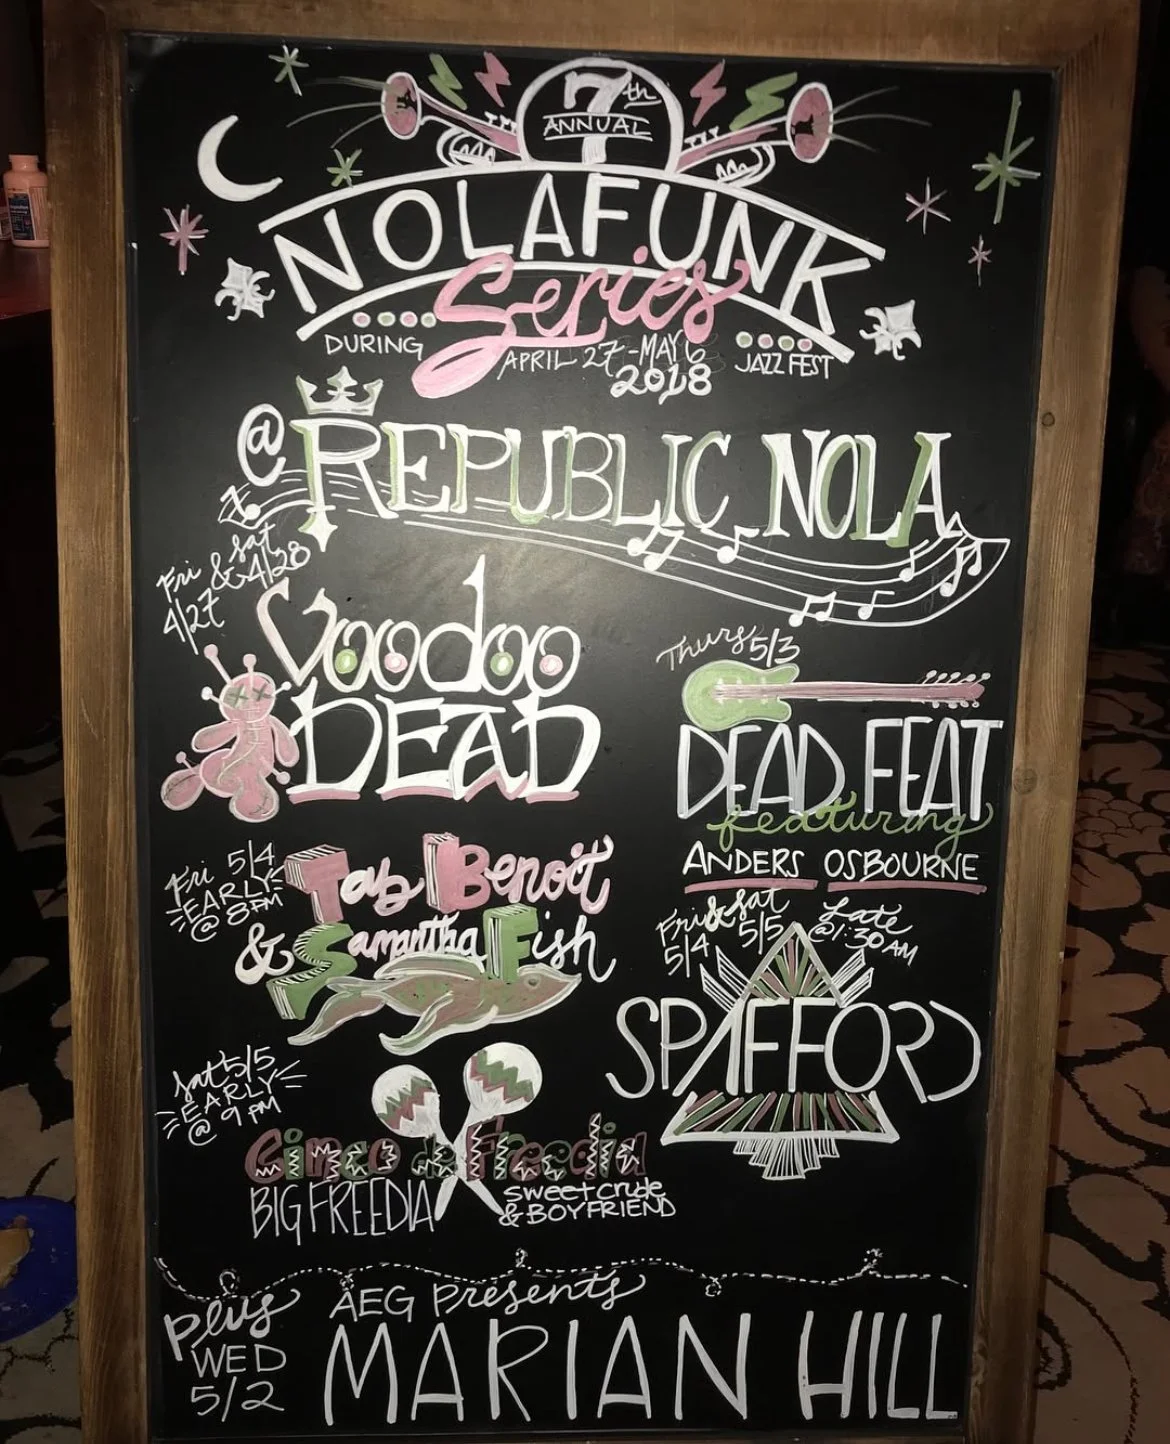 7th
ANNUAL
NOLAFUNK
Series
DURING
APRIL 27-MAY 6
2018
JAZZ FEST
@ REPUBLIC NOLA
Fri & Sat
4/27 4/28
Voodoo
DEAD
Thurs 5/3
DEAD FEAT
featuring
ANDERS OSBOURNE
Fri 5/4
EARLY
@ 8PM
Tab Benoit
& Samantha Fish
Fri & Sat
5/4 5/5
Late
@ 1:30 AM
SPAFFORD
Sat 5/5
EARLY
@ 9 PM
Cinco de Freedia
BIG FREEDIA
sweet crude
& BOYFRIEND
plus
WED
5/2
AEG Presents
MARIAN HILL